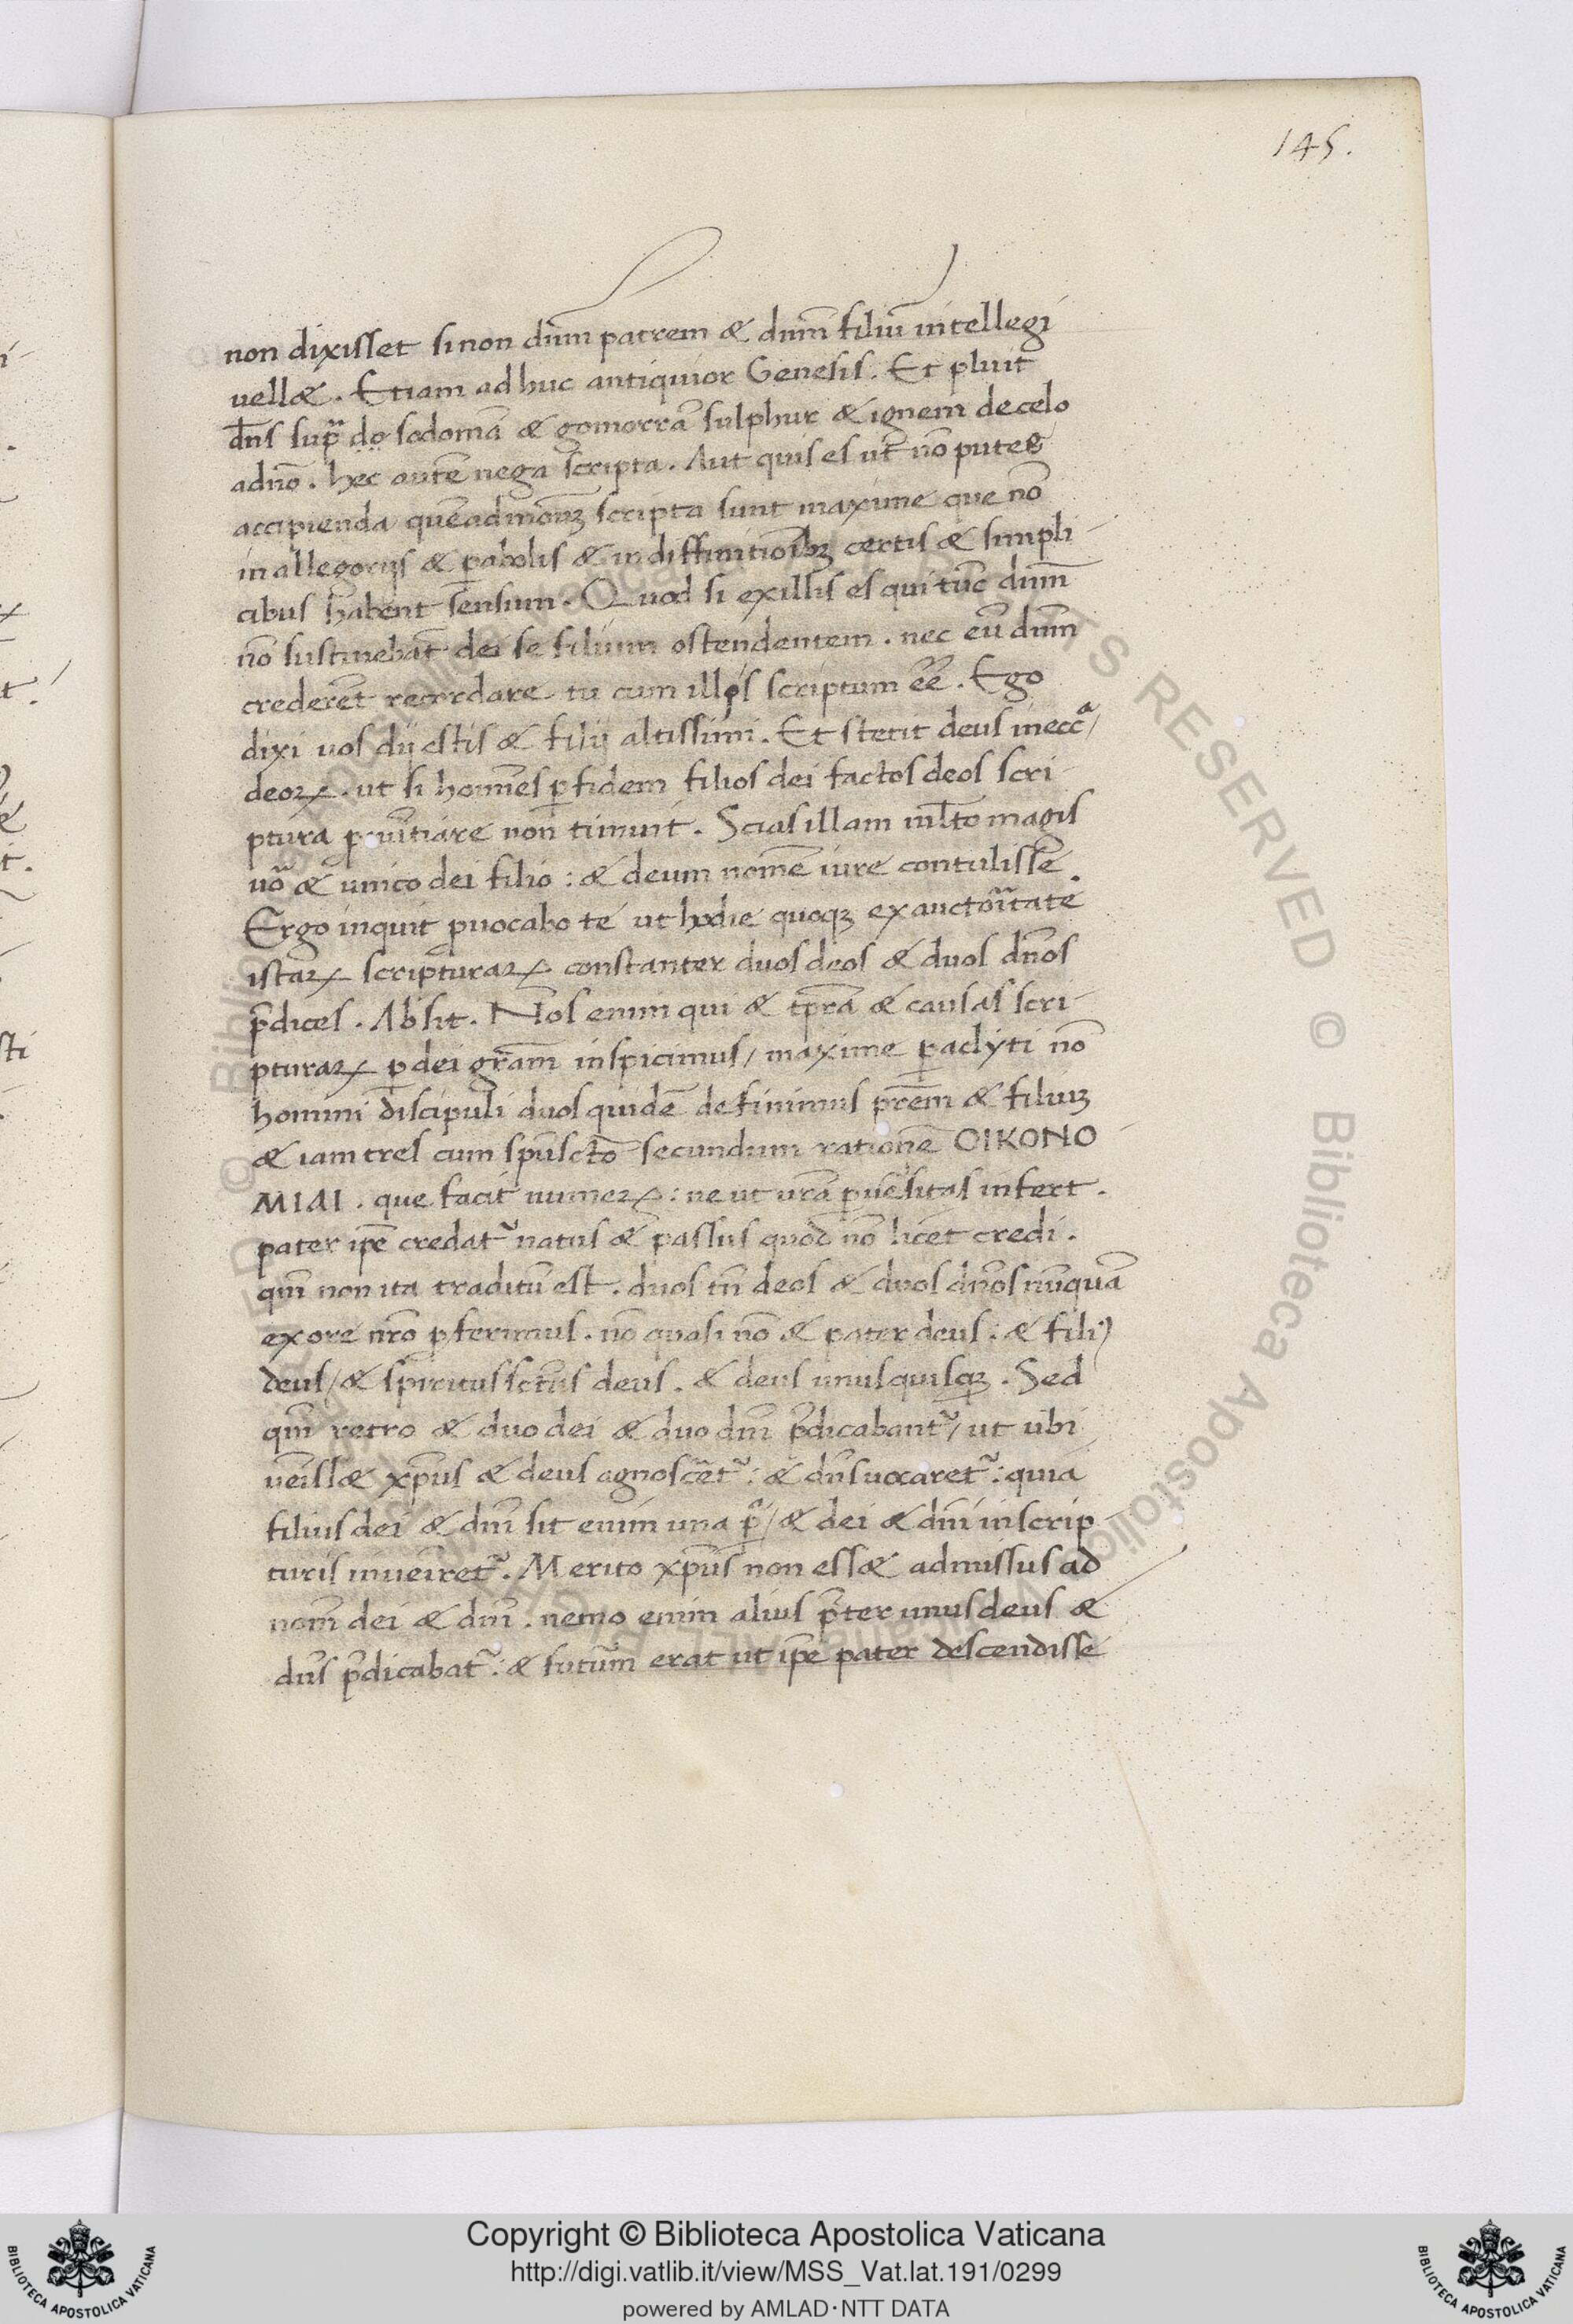 145.
non dixisset si non dūm patrem & dnm̄ filiū intellegi
vellæ. Etiam ad huc antiquior Genesis. Et pluit
dn̄s sup̄ do sodomā & gomorrā sulphur & ignem de celo
adnō. hec autē nega scripta. Aut quis es ut nō putes
accipienda quēadmodū scripta sunt maxime que nō
in allegorijs & pabolis & in diffinitiōibꝫ certis & simpli-
cibus habent sensum. Quod si ex illis es qui tūc dnm̄
nō sustinebāt dei se filium ostendentem. nec eū dnm̄
crederēt recordare tu cum illis scriptum eē. Ego
dixi vos dij estis & filij altissimi. Et stetit deus in eccᵃ/
deoꝝ. ut si homīes ꝑ fidem filios dei factos deos scri-
ptura ꝓnūtiare non timuit. Scias illam ml̄to magis
uō & unico dei filio: & deum nomē iure contulisse.
Ergo inquit ꝓvocabo te ut hodie quoqꝫ ex auctoritate
istaꝝ scripturaꝝ constanter duos deos & duos dn̄os
p̄dices. Absit. Nos enim qui & tp̄ra & causas scri-
pturaꝝ ꝑ dei gr̄am inspicimus/ maxime ꝑaclyti nō
homini discipuli duos quidē definimus pr̄em & filiuꝫ
& iam tres cum spūsctō secundum rationē OIKONO
MIAI. que facit numeꝝ: ne ut vr̄a ꝑvēsitas infert.
pater ip̄e credatᷣ natus & passus quod nō licet credi.
qm̄ non ita traditū est. duos tn̄ deos & duos dn̄os nūquā
ex ore nr̄o ꝓferimus. nō quasi nō & pater deus: & filiꝰ
deus/ & spiritussctūs deus. & deus unusquisqꝫ. Sed
qm̄ retro & duo dei & duo dnī p̄dicabantᷣ/ ut ubi
vēissæ xp̄us & deus agnoscētᷣ: & dn̄s vocaretᷣ: quia
filius dei & dnī sit enim una ꝑ/ & dei & dnī in scrip-
turis inveīretᷣ. Merito xp̄us non essæ admissus ad
nom̄ dei & dnī. nemo enim alius p̄ter unus deus &
dn̄s p̄dicabatᷣ: & futūm erat ut ip̄e pater descendisse
Copyright © Biblioteca Apostolica Vaticana
http://digi.vatlib.it/view/MSS_Vat.lat.191/0299
powered by AMLAD·NTT DATA